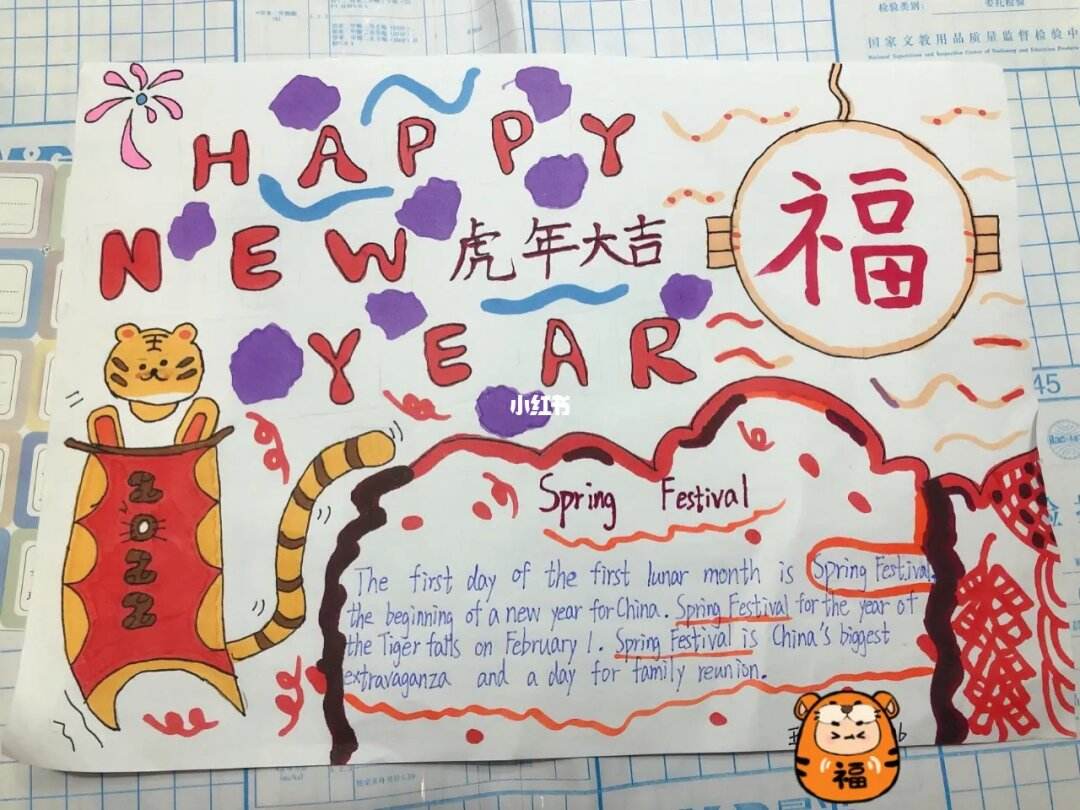 检验类别:
委托检验
国家文教用品质量监督检验中
HAPPY
NEW
虎年大吉
YEAR
福
王
小红书
2022
45
Spring Festival
The first day of the first lunar month is Spring Festival,
the beginning of a new year for China. Spring Festival for the year of
the Tiger falls on February 1. Spring Festival is China's biggest
extravaganza and a day for family reunion.
福